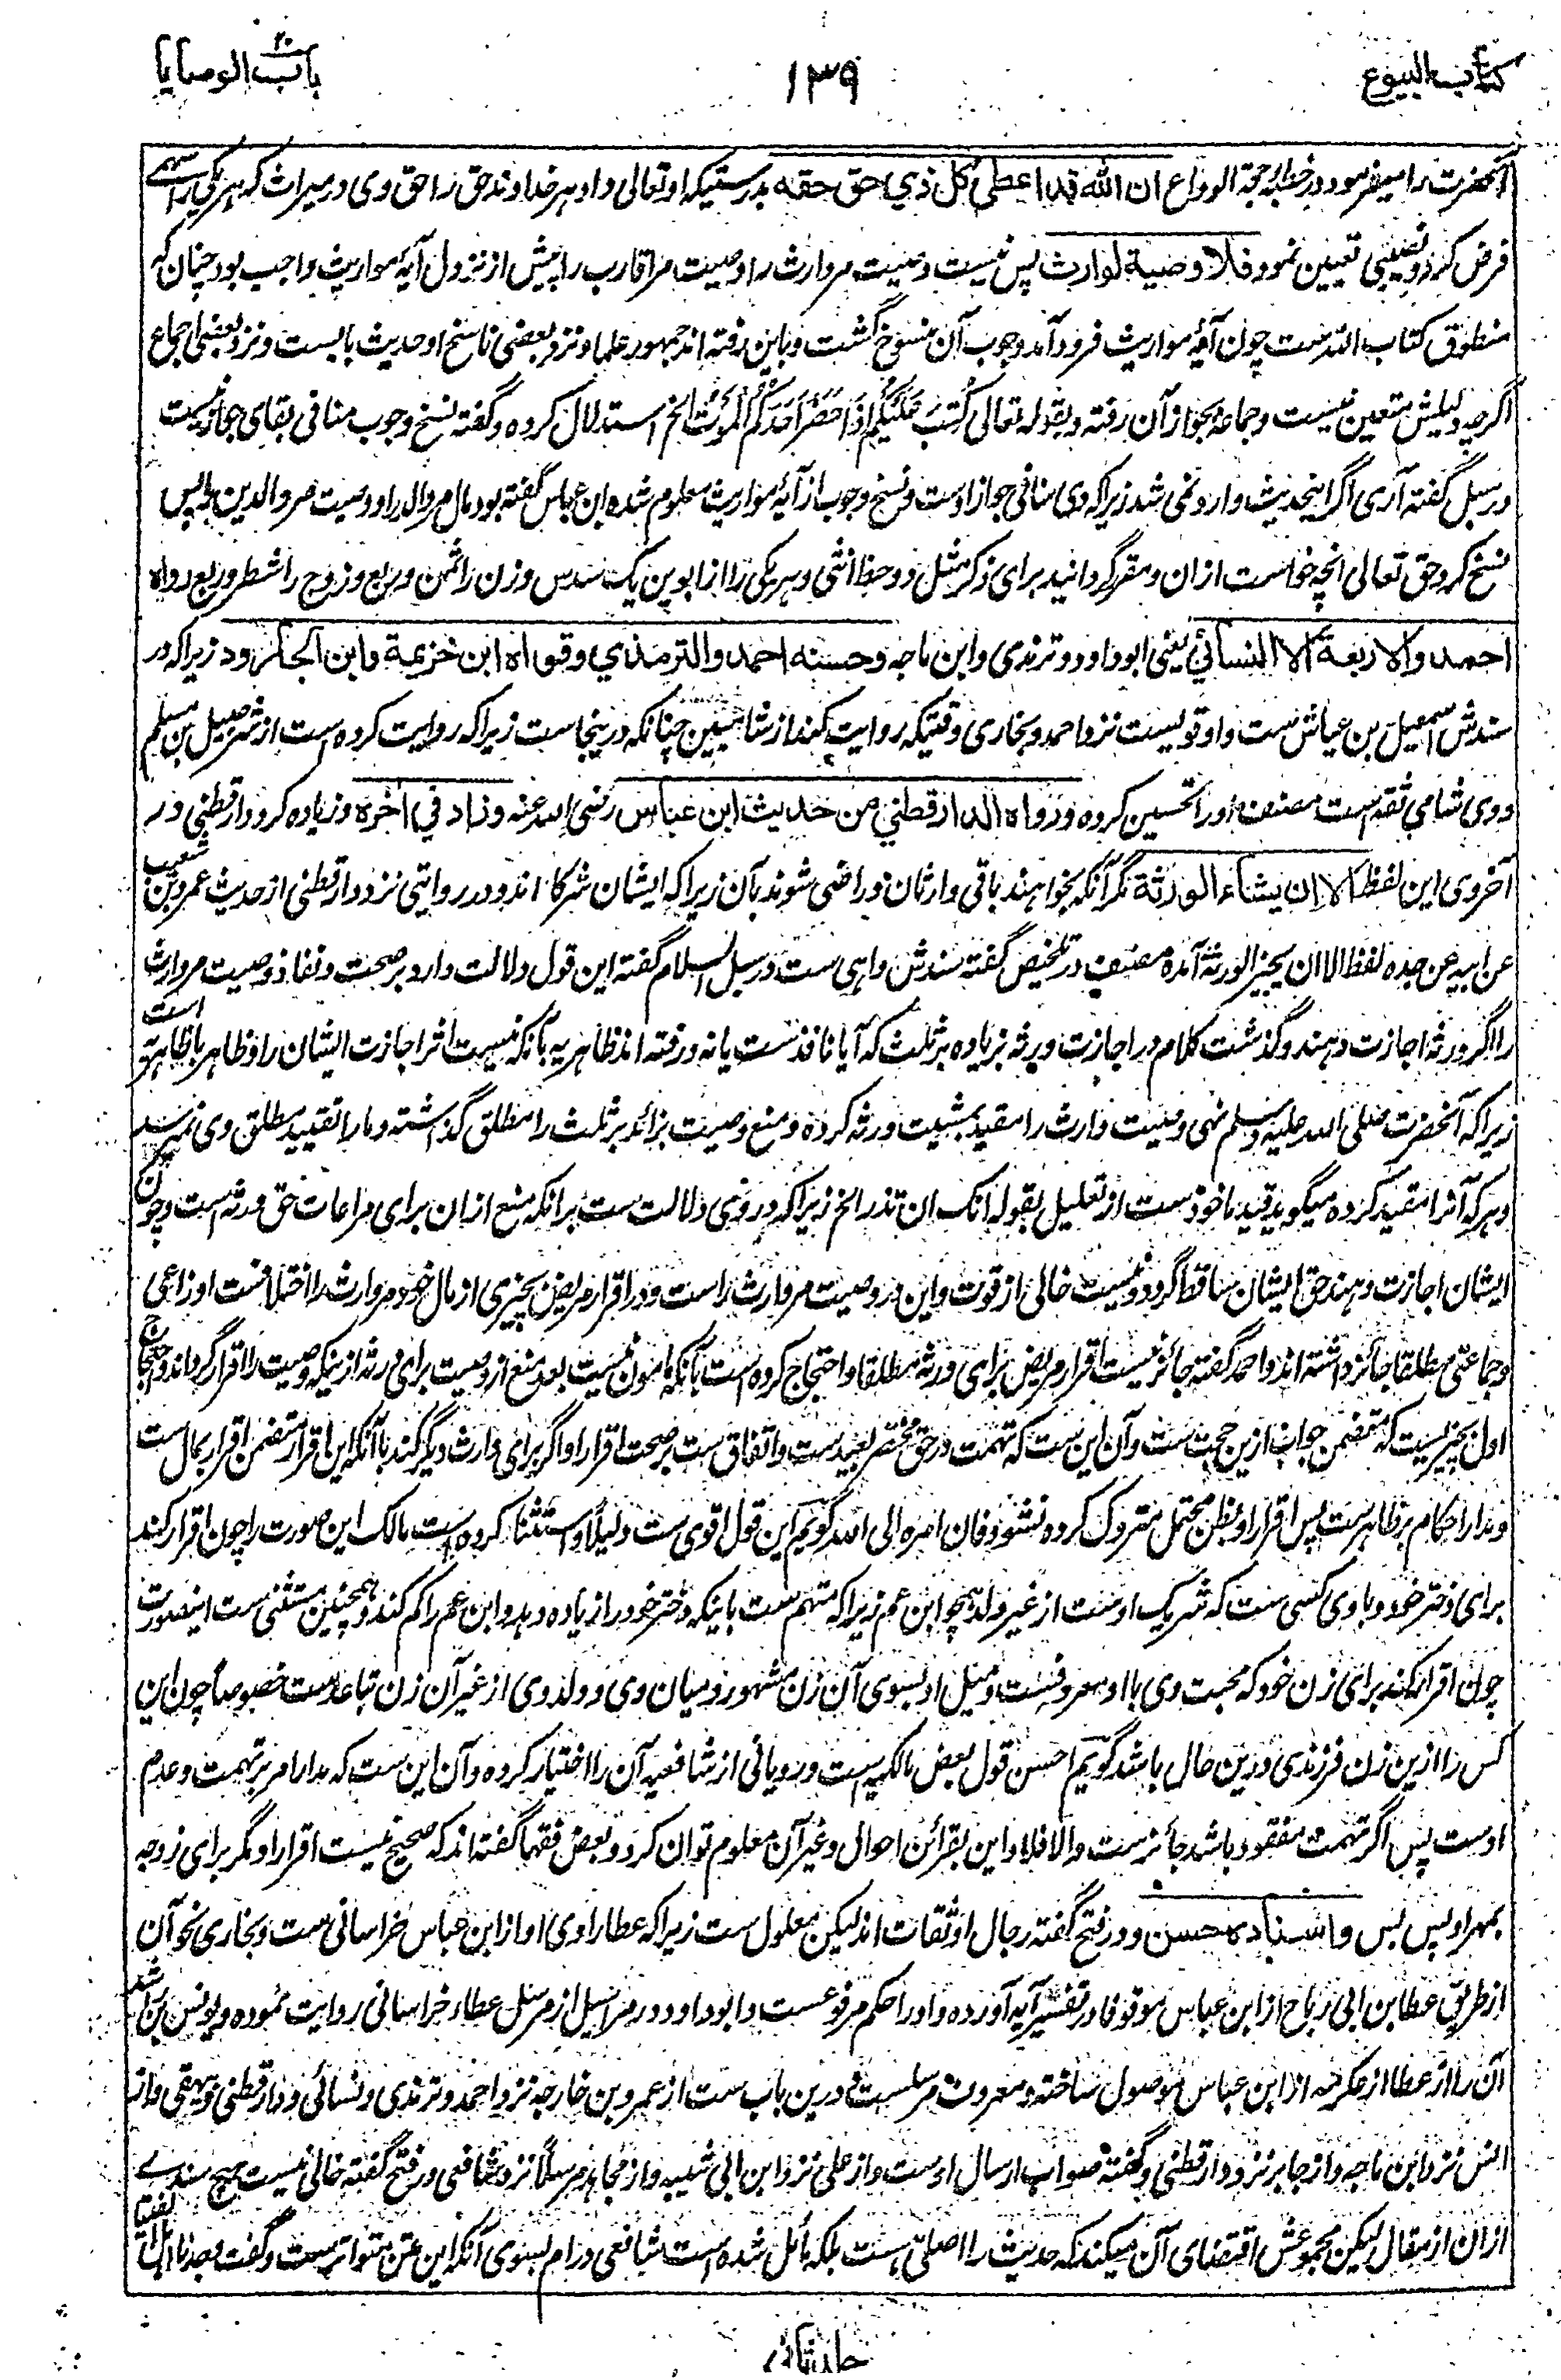 کتاب البیوع
۱۳۹
باب الوصایا
آنحضرت را میفرمود در خطبهٔ حجة الوداع ان الله قد اعطی کل ذي حق حقه بدرستیکه او تعالی داد هر خداوند حق را حق وی در میراث که هر یکی را سهمے
فرض کرد و نصیبی تعیین نمود فلا وصیة لوارث پس نیست وصیت مر وارث را وصیت مر اقارب را پیش از نزول آیهٔ مواریث واجب بود چنانکه
منطوق کتاب الله ست چون آیهٔ مواریث فرود آمد وجوب آن منسوخ گشت و باین رفته اند جمهور علما و نزد بعضی ناسخ او حدیث باب ست و نزد بعضی اجماع
اگرچه دلیلش متعین نیست و جماعهٔ بجواز آن رفته و بقوله تعالی کُتِبَ عَلَیْکُم اِذَا حَضَرَ اَحَدَکُمُ الْمَوْتُ الخ استدلال کرده و گفته نسخ وجوب منافی بقای جواز نیست
در سبل گفته آری اگر اینحدیث وارد نمی شد زیرا که وی منافی جواز اوست و نسخ وجوب از آیهٔ مواریث معلوم شده ابن عباس گفته بود مال مر ولد را و وصیت مر والدین را پس
نسخ کرد حق تعالی انچه خواست ازان و مقرر گردانید برای ذکر مثل دو حظ انثی و هر یکی را از ابوین یک سدس و زن را ثمن و ربع و زوج را شطر و ربع رواه
احمد والاربعة الا النسائي یعنی ابو داود و ترمذی و ابن ماجه وحسنه احمد والترمذي وقواه ابن خزیمة وابن الجارود زیرا که در
سندش اسمعیل بن عیاش ست و او قویست نزد احمد و بخاری وقتیکه روایت کند از شامیین چنانکه درینجا ست زیرا که روایت کرده است از شرحبیل بن مسلم
و وی شامی ثقه ست مصنف او را تحسین کرده ورواه الدارقطني من حدیث ابن عباس رضی الله عنه وزاد في آخره و زیاده کرد دارقطنی در
آخر وی این لفظ الا ان یشاء الورثة مگر آنکه بخواهند باقی وارثان و راضی شوند بآن زیرا که ایشان شرکا اند و در روایتی نزد دارقطنی از حدیث عمرو بن شعیب
عن ابیه عن جده لفظ الا ان یجیز الورثة آمده مصنف در تلخیص گفته سندش واهی ست در سبل السلام گفته این قول دلالت دارد بر صحت و نفاذ وصیت مر وارث
را اگر ورثه اجازت دهند و گذشت کلام در اجازت ورثه بزیاده بر ثلث که آیا نافذ ست یا نه و رفته اند ظاهریه بآنکه نیست اثر اجازت ایشان را و ظاهر با ظاهریه است
زیرا که آنحضرت صلی الله علیه وسلم نهی وصیت وارث را مقید بمشیت ورثه کرده و منع وصیت بزائد بر ثلث را مطلق گذاشته و ما را تقیید مطلق وی نمیرسد
و هر که آنرا مقید کرده میگوید قید ماخوذ ست از تعلیل بقوله انک ان تذر الخ زیرا که در وی دلالت ست برانکه منع ازان برای مراعات حق ورثه است و چون
ایشان اجازت دهند حق ایشان ساقط گردد و نیست خالی از قوت و این در وصیت مر وارث راست و در اقرار مریض بچیزی از مال خود مر وارث را اختلافست اوزاعی
و جماعتی مطلقا جائز داشته اند و احمد گفته جائز نیست اقرار مریض برای ورثه مطلقا و احتجاج کرده است بآنکه مامون نیست بعد منع از وصیت برای ورثه ازینکه وصیت را اقرار گرداند و احتجاج
اول بچیزیست که متضمن جواب ازین حجت ست و آن این ست که تهمت در حق محتضر بعید ست و اتفاق ست بر صحت اقرار او اگر برای وارث دیگر کند با آنکه این اقرار متضمن اقرار بمال ست
و مدار احکام بر ظاهر ست پس اقرار او بظن محتمل متروک کرده نشود فان امره الی الله گویم این قول اقوی ست دلیلاً و استثنا کرده است مالک این صورت را چون اقرار کند
برای دختر خود و با وی کسی ست که شریک اوست از غیر ولد همچو ابن عم زیرا که متهم ست باینکه دختر خود را زیاده دهد و ابن عم را کم کند و همچنین مستثنی ست اینصورت
چون اقرار کند برای زن خود که محبت وی با او معروفست و میل او بسوی آن زن مشهور و میان وی و ولد وی از غیر آن زن تباعد ست خصوصاً چون این
کس را ازین زن فرزندی درین حال باشد گویم احسن قول بعض مالکیه است و رویانی از شافعیه آن را اختیار کرده و آن این ست که مدار امر بر تهمت و عدم
اوست پس اگر تهمت مفقود باشد جائز ست والا فلا و این بقرائن احوال و غیر آن معلوم توان کرد و بعض فقها گفته اند که صحیح نیست اقرار او مگر برای زوجه
بمهر او پس بس واسناده حسن و در فتح گفته رجال او ثقات اند لیکن معلول ست زیرا که عطا راوی او از ابن عباس خراسانی ست و بخاری نحو آن
از طریق عطا بن ابی رباح از ابن عباس موقوفا در تفسیر آیه آورده و او را حکم مرفوعست و ابو داود در مراسیل از مرسل عطاء خراسانی روایت نموده و یونس بن راشد
آن را از عطا از عکرمه از ابن عباس موصول ساخته و معروف مرسلست و درین باب ست از عمرو بن خارجه نزد احمد و ترمذی و نسائی و دارقطنی و بیهقی و از
انس نزد ابن ماجه و از جابر نزد دارقطنی و گفته صواب ارسال اوست و از علی نزد ابن ابی شیبه و از مجاهد مرسلاً نزد شافعی در فتح گفته خالی نیست هیچ سندے
ازان از مقال لیکن مجموعش اقتضای آن میکند که حدیث را اصلی ست بلکه مائل شده است شافعی در ام بسوی آنکه این متن متواتر ست و گفت وجدنا اهل الفتیا
جلد ثانی